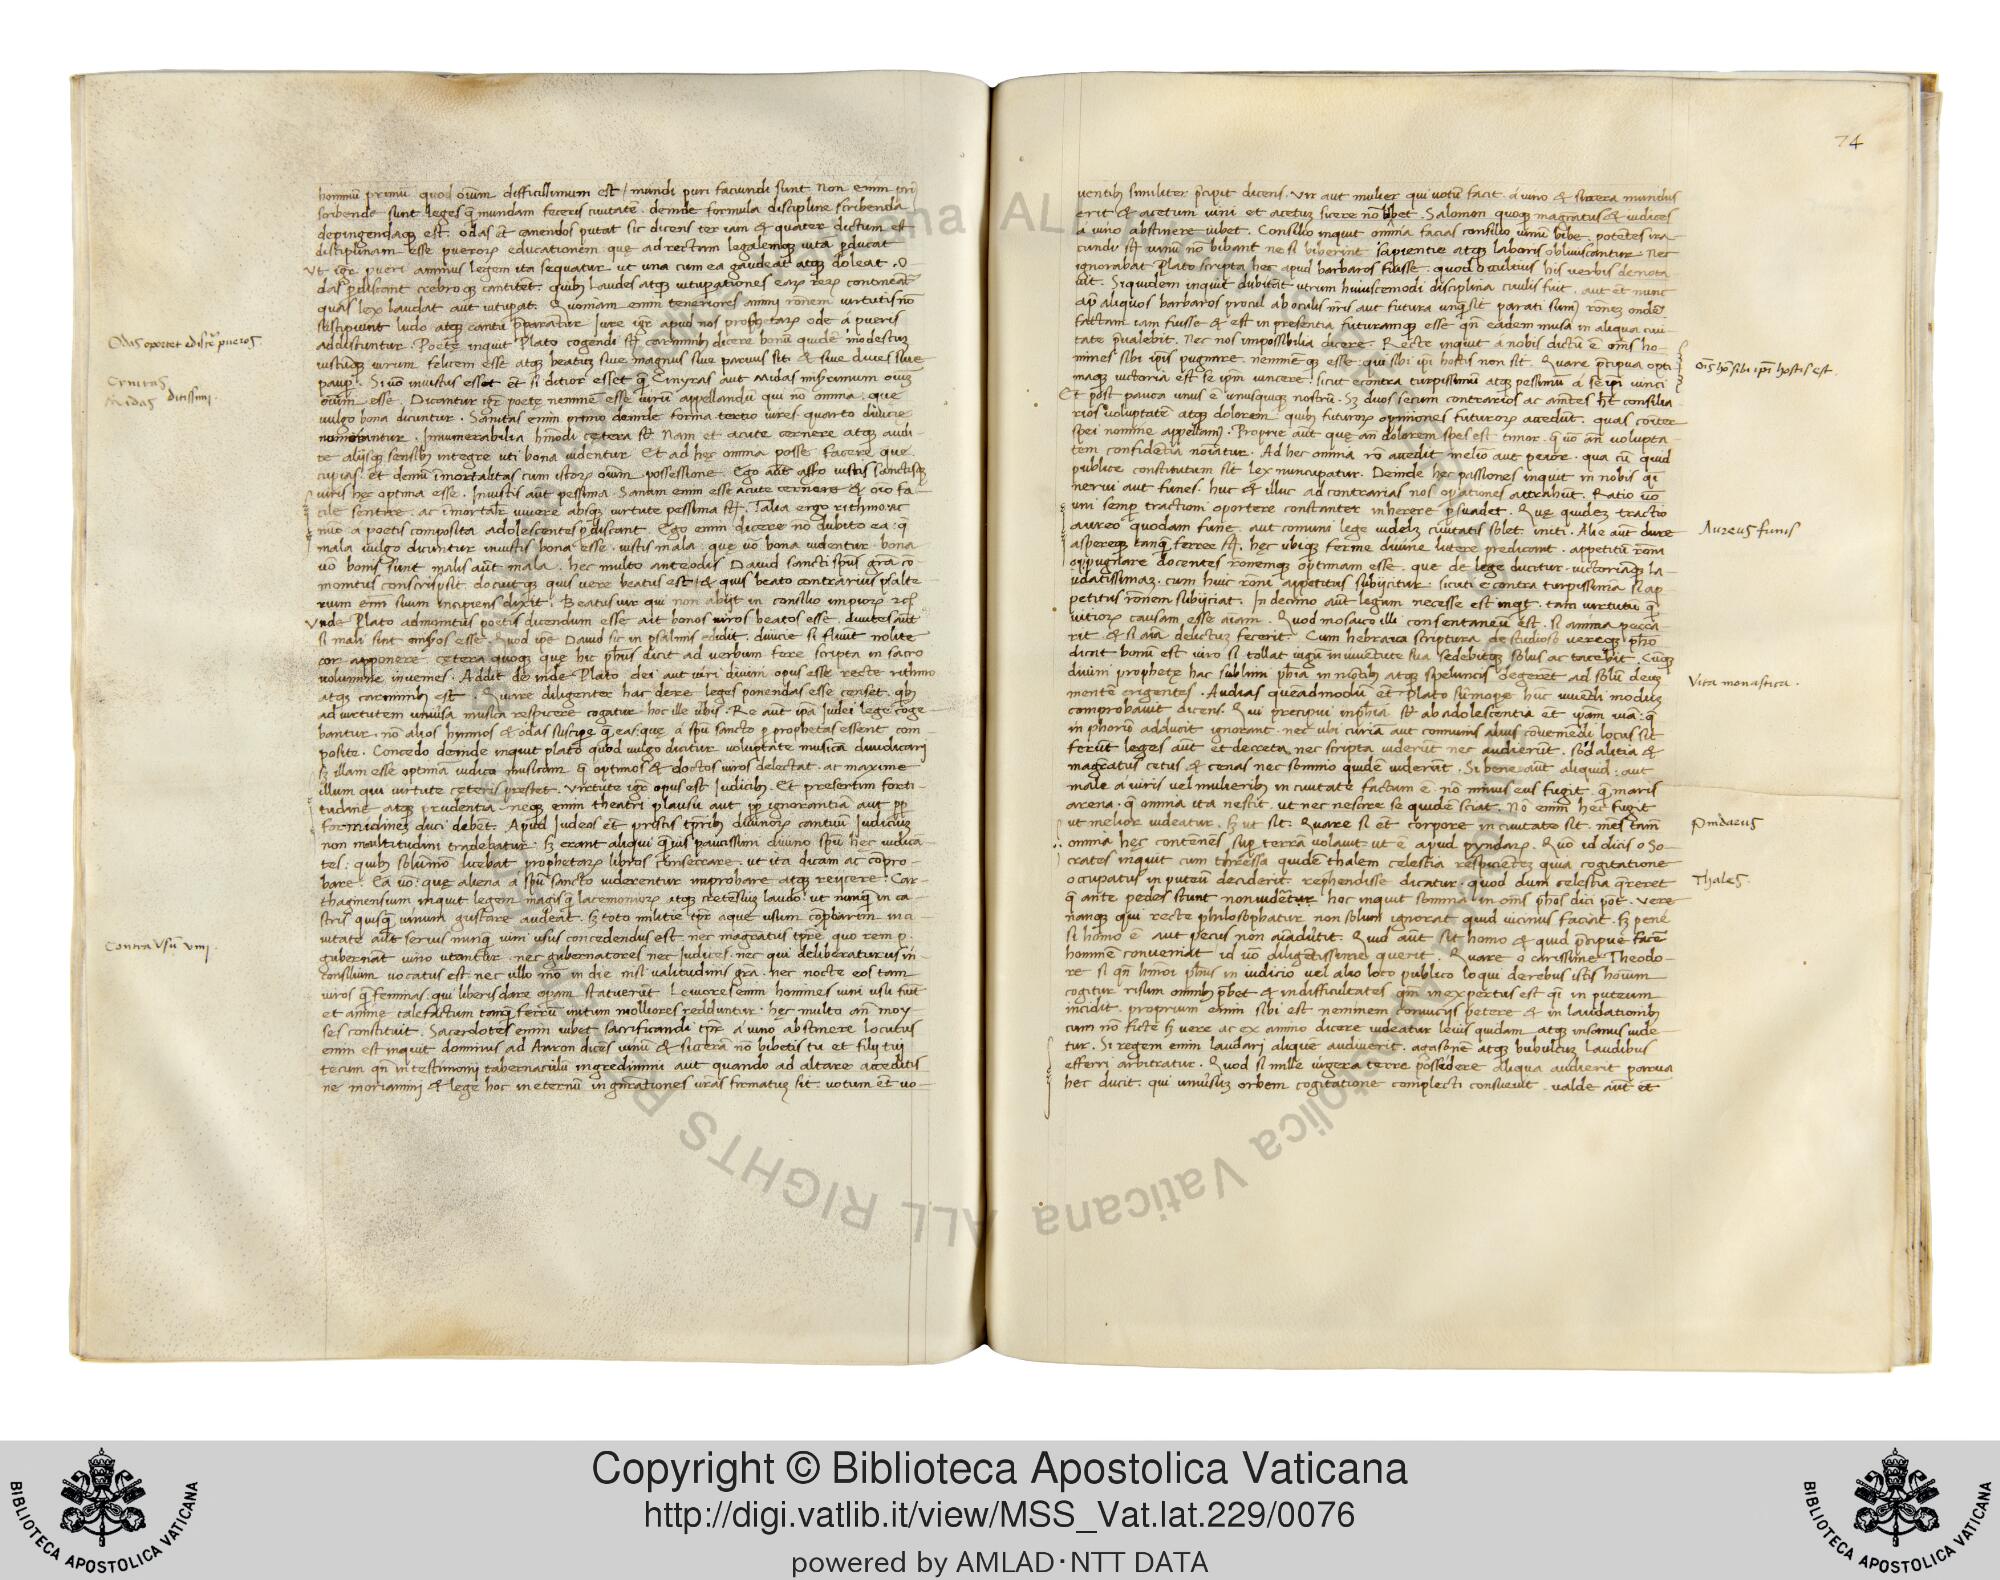 hominū primū quod oīum difficillimum est / mundi puri faciundi sunt Non enim pri
scribende sunt leges q̄ mundam feceris ciuitatē. deinde formula discipline scribenda
depingendaqꝫ est. odas et canendas putat sic dicens ter iam & quater dictum est
disciplinam esse pueroꝝ educationem que ad rectam legalemqꝫ uitā ꝑducat
Vt igr̄ pueri animus legem ita sequatur ut una cum ea gaudeat atqꝫ doleat. O
das ꝑdiscant crebroqꝫ cantitet. quibꝫ laudes atqꝫ uituperationes earꝫ rerꝫ contineāt
quas lex laudat aut uituꝑat. Quoniam enim teneriores animi rōnem uirtutis nō
suscipiunt ludo atqꝫ cantu p̄parātur. Iure igr̄ apud nos prophetarꝫ ode á pueris
addiscuntur. Poete inquit Plato cogendi sūt carminibꝫ dicere bonū quidē modestuꝫ
iustūqꝫ uirum felicem esse atqꝫ beatuꝫ siue magnus siue paruus sit. & siue diues siue
paup̄. Si uō iniustus esset et si ditior esset q̄ Cinyras aut Midas miserrimum ouiū
ouium esse. Dicantur igr̄ poete neminē esse uirū appellandū qui nō omnia. que
uulgo bona dicuntur. Sanitas enim primo deinde forma tertio uires quarto diuicie
numerantur. Innumerabilia hm̄odi cetera sūt Nam et acute cernere atqꝫ audi-
re aliisqꝫ sensibꝫ integre uti bona uidentur. Et ad hęc omnia posse facere que
cupias. et demū īmortalitas cum istorꝫ oīum possessione. Ego aūt assero iustis sanctisqꝫ
uiris hęc optima esse. Iniustis aūt pessima. Sanam enim esse acute cernere & oīo fa-
cile sentire. ac īmortalr̄ uiuere absqꝫ uirtute pessima sūt. Talia ergo rithmo ac
a poetis composita adolescentes ꝑdiscant. Ego enim dicere nō dubito ea. q̄
mala uulgo dicuntur iniustis bona esse. iustis mala. que uō bona uidentur. bona
uō bonis sunt malis aūt mala. hęc multo ante odis Dauid sancti spūs grā cō
monitus conscripsit. docuitqꝫ quis uere beatus est / & quis beato contrarius psalte-
rium enim suum incipiens dixit. Beatus uir qui non abiit in consilio impiorꝫ
Vnde Plato admonitus poetis dicendum esse ait bonos uiros beatos esse. diuites aūt
si mali sint miseros esse. Quod ipe Dauid sic in psalmis edidit. diuicie si fluūt nolite
cor apponere. cetera quoqꝫ que hic phūs dicit ad uerbum fere scripta in sacro
uolumine inuenies. Addit deinde Plato dei aut uiri diuini opus esse recte rithmo
atqꝫ carminibꝫ est. Quare diligenter hac de re leges ponendas esse censet. qbꝫ
ad uirtutem uniuersa musica respicere cogatur hoc ille uerbis. Re aūt ipā Iudei lege coge-
bantur. nō alios hymnos & odas suscipe q̄ eas: que á spū sancto ꝑ prophetas essent com-
posite. Concedo deinde inquit plato quod uulgo dicitur uoluptate musicā diiudicari
sꝫ illam esse optimā iudico musicam q̄ optimos & doctos uiros delectat. ac maxime
illum qui uirtute ceteris prestet. Virtute igr̄ opus est Iudicibꝫ. Et presertim forti-
tudine atqꝫ prudentia. neqꝫ enim theatri plausu aut ppꝫ ignorantiā aut ppꝫ
formidinem duci debēt. Apud Iudeos et priscis tp̄ribꝫ diuinorꝫ cantuum Iudiciuꝫ
non multitudini tradebatur. sꝫ erant aliqui quis paucissimi diuino spū hęc iudicā-
tes: quibꝫ solūmō licebat prophetarꝫ libros consecrare. ut ita dicam ac compro-
bare. Ea uō: que aliena á spū sancto uiderentur improbare atqꝫ reiicere. Car-
thaginensium inquit legem magisq̄ lacemoniorꝫ atqꝫ cretensiuꝫ laudo. ut nunq̄ in ca-
stris quisq̄ uinum gustare audeat. Sꝫ toto militie tpr̄ aque usum comprobarim in ci-
uitate aūt seruis nunq̄ uini usus concedendus est. nec magr̄atus tp̄re quo rem ꝑ.
gubernat uino utantur. nec gubernatores nec iudices. nec qui deliberaturus in
consilium uocatus est. nec ullo mō in die nisi ualitudinis grā. nec nocte eos tam
uiros q̄ feminas: qui liberis dare opam statuerūt Leuiores enim homines uini usu fiūt
et anime calefactum tanq̄ ferrū initum molliores redduntur. hęc multo añ moy-
ses constituit. Sacerdotes enim iubet sacrificandi tpr̄ á uino abstinere locutus
enim est inquit dominus ad Aaron dicēs uinū & sicerā nō bibetis tu et filij tui
tecum qn̄ in testimonij tabernaculū ingredimini aut quando ad altare acceditis
ne moriamini & lege hoc in eternū in gn̄rationes uras firmatuꝫ sit. uotum et uo-
Odas oportet ediscr̄e pueros
Cynitas
Midas ditissimi.
Contra Vsū Vini.
74
uentibꝫ similiter p̄cipit dicens. Vir aut mulier qui uotū facit. á uino & sicera mundus
erit & acetum uini et acetuꝫ sicere nō bibet. Salomon quoqꝫ magr̄atus & iudices
á uino abstinere iubet. Consilio inquit omnia facias consilio uinū bibe. potētes ira-
cundi sūt uinū nō bibant ne si biberint sapientie atqꝫ laboris obliuiscantur. Nec
ignorabat Plato scripta hęc apud barbaros fuisse. quod occultius his uerbis denota
uit. Siquidem inquit dubitāt utrum huiuscemodi disciplina ciuilis fuit. aut et nunc
ap̄ aliquos barbaros procul ab oculis nr̄is aut futura unq̄ sit parati sum rōnez ondē
factam iam fuisse & est in presentia futuramqꝫ esse qn̄ eadem musa in aliqua ciui
tate p̄ualebit. Nec nos impossibilia dicere. Recte inquit á nobis dictū ē oms ho-
mines sibi ipsis pugnare. neminēqꝫ esse. qui sibi ipi hostis non sit. Quare p̄cipua opti
maqꝫ uictoria est se ipm̄ uincere. sicut econtra turpissimū atqꝫ pessimū á se ipi uinci
Et post pauca unus ē unusquisqꝫ nostrū. Sꝫ duos secum contrarios ac amētes hēt consilia
rios uoluptatē atqꝫ dolorem. quibꝫ futurorꝫ opiniones futurorꝫ accedūt. quas cōiter
spei nomine appellam. Proprie aūt que añ dolorem spes est timor. q̄ uō añ uolupta-
tem confidentia noīatur. Ad hęc omnia rō accedit meliō aut peiore. qua cū quid
publice constitutum sit lex nuncupatur. Deinde hęc passiones inquit in nobis qi
nerui aut funes. huc & illuc ad contrarias nos oꝑationes attrahūt. Ratio uō
uni semp̄ tractioni oportere constanter inherere ꝑsuadet. Que quideꝫ tractio
aureo quodam fune. aut comuni lege uidelꝫ ciuitatis solet initi. Alie aūt dure
aspereqꝫ tanq̄ ferree sūt. hęc ubiqꝫ ferme diuine littere predicant. appetitū rōni
oppugnare docentes rōnemqꝫ optimam esse. que de lege ducitur. uictoriāqꝫ la-
udatissimaꝫ. cum huic rōni appetitus subiicitur. sicuti e contra turpissima si ap-
petitus rōnem subiiciat. In decimo aūt legum necesse est inqt. tam uirtutū q̄
uitiorꝫ causam esse aiam. Quod mosaico illi consentaneū est. si anima pecca-
rit. & si aīa delictuꝫ fecerit. Cum hebraica scriptura de studioso uereqꝫ pho
dicat bonū est uiro si tollat iugū in iuuentute sua sedebitqꝫ solus ac tacebit. Cūqꝫ
diuini prophete hac sublimi phia in montibꝫ atqꝫ speluncis degerēt ad solū deuꝫ
mentē erigentes. Audias queādmodū et Plato sūmope hūc uiuendi moduꝫ
comprobauit dicens. Qui precipui in phia sūt ab adolescentia et ipām uiā. q̄
in phorū adducit ignorant. nec ubi curia aut comunis alius couenedi locus sit
ferūt leges aūt et decreta nec scripta uiderūt nec audierūt. sodalitia &
magr̄atus cetus & cenas nec somnio quidē uiderūt. Si bene aūt aliquid. aut
male á uiris uel mulieribꝫ in ciuitate factum ē. nō minus eus fugit. q̄ maris
arena. q̄ omnia ita nescit. ut nec nescire se quidē sciat. Nō enim hęc fugit
ut melior uideatur. sꝫ ut sit. Quare si et corpore in ciuitate sit. mēs tam
omnia hęc contēnēs suꝑ terrā uolauit. ut ē apud pyndarꝫ. Quo id dicis o So-
crates inquit cum thressa quidē thalem celestia respicienteꝫ quia cogitatione
occupatus in puteū deciderit. rephendisse dicatur. quod dum celestia q̄reret
q̄ ante pedes sunt non uidēretur. hoc inquit somma in oms phos dici pot. uere
nanqꝫ qui recte philosophatur non solum ignorat quid uicinus faciat. sꝫ pene
si homo ē aut pecus non aiaduertit. Quid aūt sit homo & quid p̄cipue facē
hominē conueniāt id uō diligētissime querit. Quare o carissime Theodo-
re si qn̄ hm̄oi phūs in iudicio uel alio loco publico loqui de rebus istis homum
cogitur risum omnibꝫ p̄bet & in difficultates qm̄ inexpertus est qi in puteum
incidit. proprium enim sibi est neminem conuiciis petere & in laudationibꝫ
cum nō ficte sꝫ uere ac ex animo dicere uideatur leuis quidam atqꝫ insanus uide-
tur. Si regem enim laudari aliquē audiuerit. agasonē atqꝫ bubulcuꝫ laudibus
efferri arbitratur. Quod si mille iugera terre possidere aliqua audierit parua
hęc ducit. qui uniuersuꝫ orbem cogitatione complecti consueuit. ualde aūt et
oīs ho sibi ipi hostis est.
Aureus funis
Vita monastica.
Pindarus
Thales
Copyright © Biblioteca Apostolica Vaticana
http://digi.vatlib.it/view/MSS_Vat.lat.229/0076
powered by AMLAD·NTT DATA
BIBLIOTECA APOSTOLICA VATICANA
BIBLIOTECA APOSTOLICA VATICANA